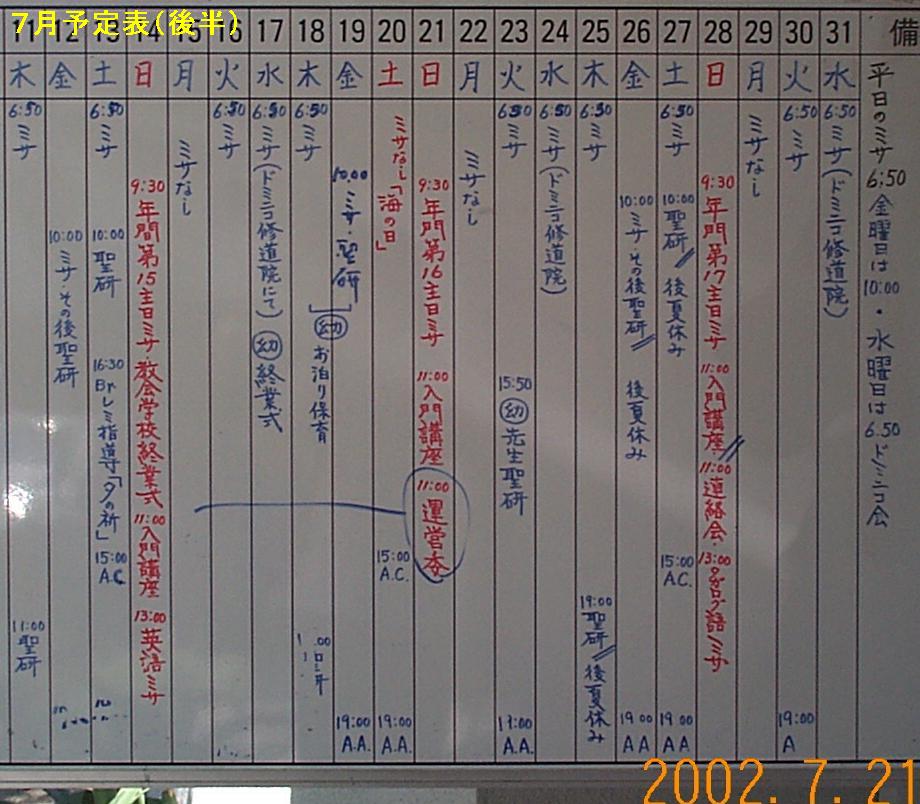 7月予定表(後半)
11 12 13 14 15 16 17 18 19 20 21 22 23 24 25 26 27 28 29 30 31 備
木 金 土 日 月 火 水 木 金 土 日 月 火 水 木 金 土 日 月 火 水
6:50 ミサ
11:00 聖研
10:00 ミサ・その後聖研
6:50 ミサ
10:00 聖研
16:30 Brレミ指導「夕の祈」
15:00 A.C.
9:30 年間第15主日ミサ 教会学校終業式
11:00 入門講座
13:00 英語ミサ
ミサなし
6:50 ミサ
6:50 ミサ(ドミニコ修道院にて) 幼 終業式
6:50 ミサ
幼 お泊り保育
10:00 ミサ・聖研
19:00 A.A.
ミサなし「海の日」
15:00 A.C.
19:00 A.A.
9:30 年間第16主日ミサ
11:00 入門講座
11:00 運営委
ミサなし
6:50 ミサ
15:50 幼 先生聖研
A.A.
6:50 ミサ(ドミニコ修道院)
6:50 ミサ
19:00 聖研 後夏休み
10:00 ミサ・その後聖研 後夏休み
19:00 AA
6:50 ミサ
10:00 聖研 後夏休み
15:00 A.C.
19:00 AA
9:30 年間第17主日ミサ
11:00 入門講座
11:00 連絡会・
13:00 タガログ語ミサ
ミサなし
6:50 ミサ
19:00 A
6:50 ミサ(ドミニコ修道院)
平日のミサ 6:50 金曜日は 10:00・水曜日は 6.50 ドミニコ会
2002.7.21